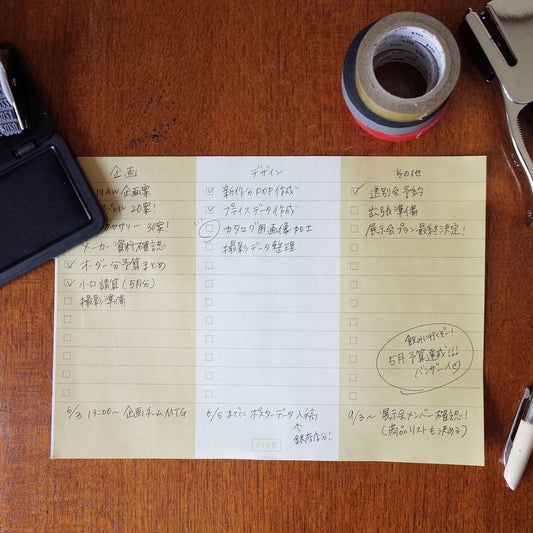 企画
19AW企画案
20案!
クセサリー 30案!
メーカー資料確認
オーダー分予算まとめ
小口請算(5月分)
撮影準備
6/3 13:00〜 企画チームMTG
デザイン
新作分POP作成
プライスデータ作成
カタログ用画像加工
撮影データ整理
6/5までにポスターデータ入稿
↑
銀座店分!
FIVE
その他
送別会予約
出張準備
展示会プラン最終決定!
飲みに行くぞー!
5月予算達成!!!
バンザーイ
9/3〜 展示会メンバー確認!
(商品リストも決める)